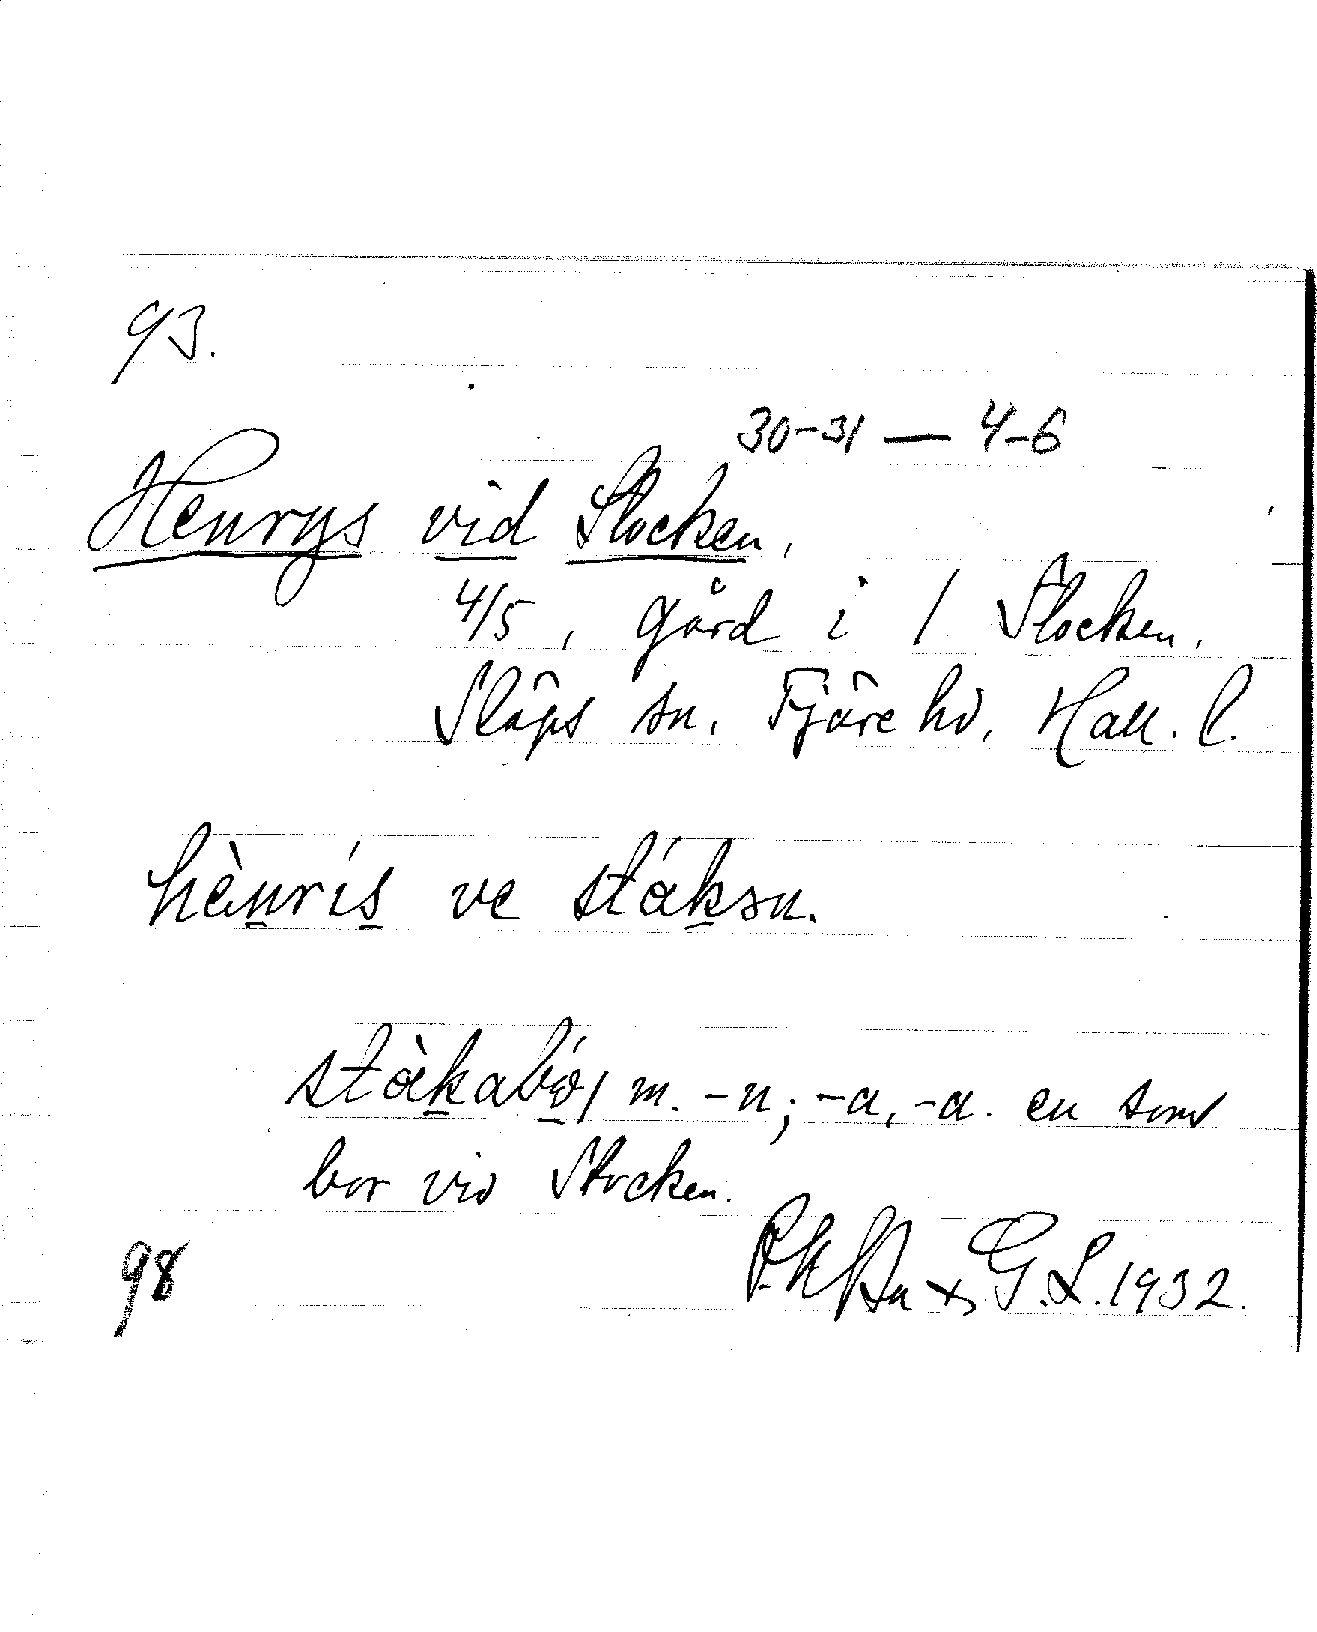 93.
30-31 — 4-6
Henrys vid Stocken,
4/5, gård i 1 Stocken,
Släps sn. Fjäre hd, Hall. l.
hènrís ve stákən.
stàkabó, m. -n; -a, -a. en som
bor vid Stocken.
G. L. 1932.
98